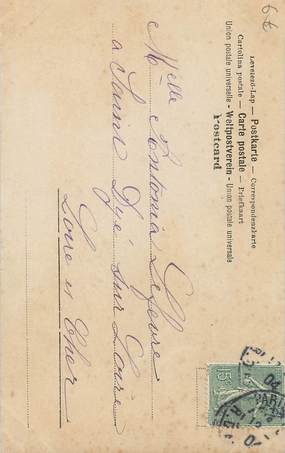 6€
Levelező-Lap — Postkarte — Correspondenzkarte
Cartolina postale — Carte postale — Briefkaart
Union postale universelle - Weltpostverein - Union postale universelle
Postcard
Melle Antonia Lefèvre
à Saint Dyé sur Loire
Loir et Cher
PARIS
04
15c